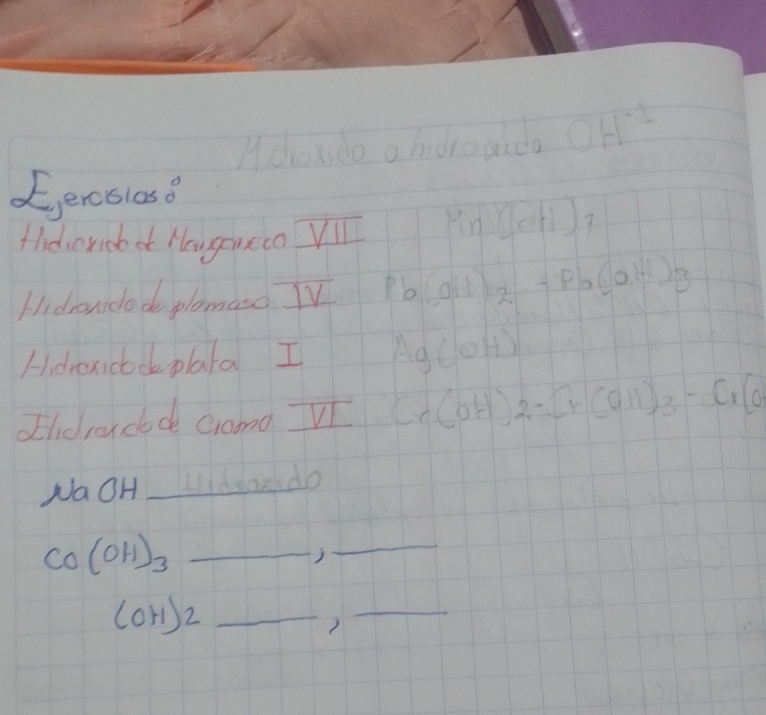 Hidroxido o hidroxido OH⁻¹
Ejercisios:
Hidroxido de Manganeso VII Mn(OH)7
Hidroxido de plomaso IV Pb(OH)2 + Pb(OH)3
Hidroxido de plata I Ag(OH)
Hidroxido de Cromo VI Cr(OH)2-Cr(OH)3-Cr(O
NaOH Hidroxido
Co(OH)3 ____, ____
(OH)2 ____, ____